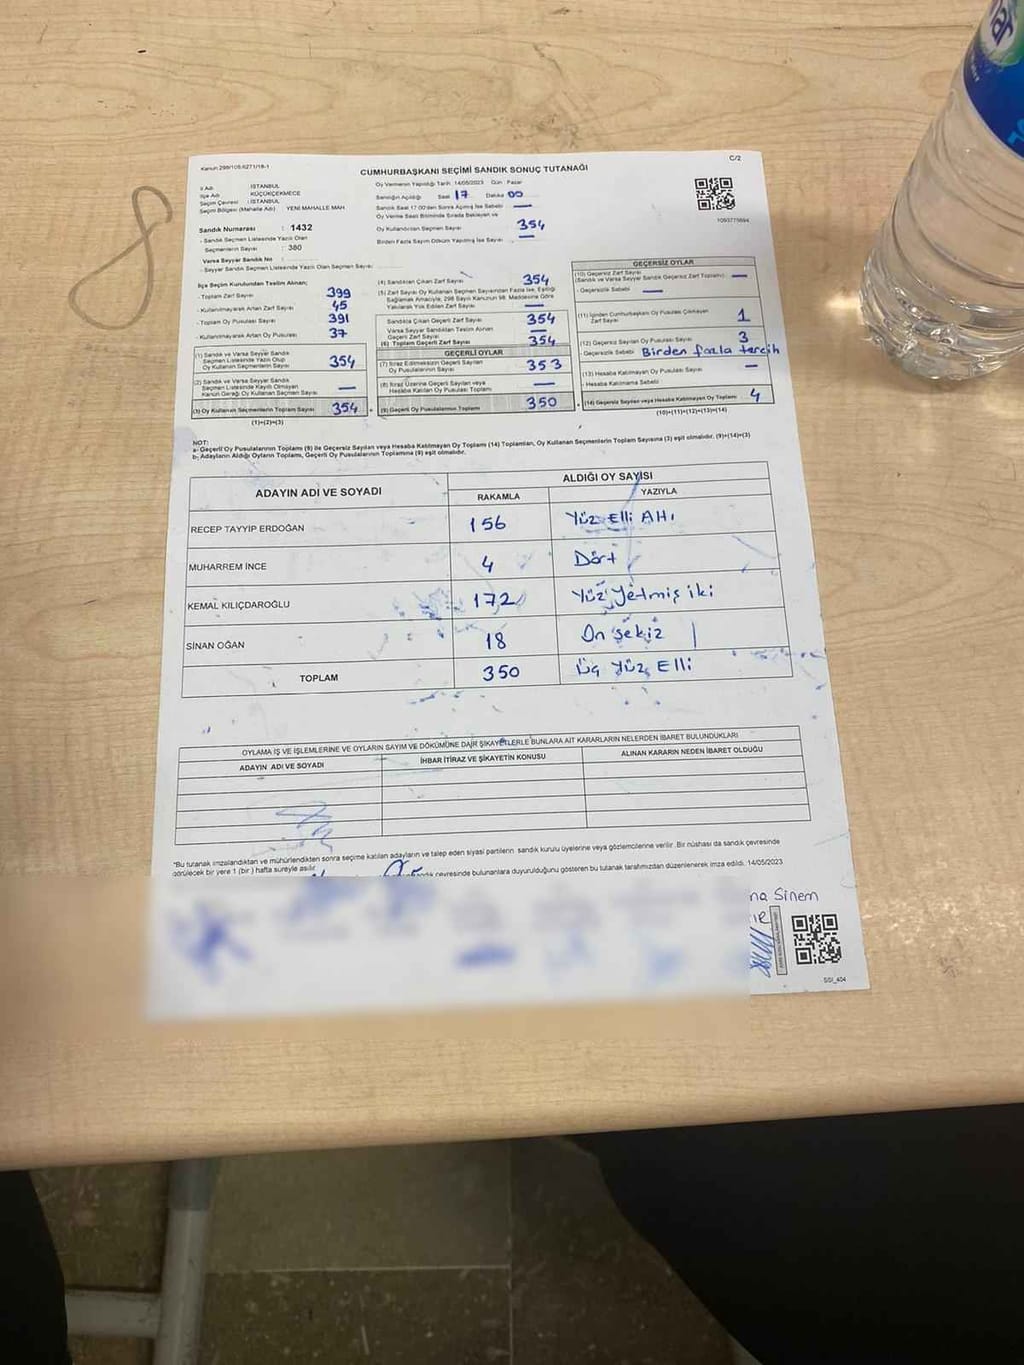 Kanun 298/105,6271/18-1
C/2
CUMHURBAŞKANI SEÇİMİ SANDIK SONUÇ TUTANAĞI
İl Adı : İSTANBUL
İlçe Adı : KÜÇÜKÇEKMECE
Seçim Çevresi : İSTANBUL
Seçim Bölgesi (Mahalle Adı) : YENİ MAHALLE MAH
Sandık Numarası : 1432
- Sandık Seçmen Listesinde Yazılı Olan
Seçmenlerin Sayısı : 380
Varsa Seyyar Sandık No :
- Seyyar Sandık Seçmen Listesinde Yazılı Olan Seçmen Sayısı :
Oy Vermenin Yapıldığı Tarih: 14/05/2023 Gün: Pazar
Sandığın Açıldığı Saat 17 Dakika 00
Sandık Saat 17:00'den Sonra Açılmış İse Sebebi —
Oy Verme Saati Bitiminde Sırada Bekleyen ve
Oy Kullandırılan Seçmen Sayısı 354
Birden Fazla Sayım Döküm Yapılmış İse Sayısı —
1093775694
İlçe Seçim Kurulundan Teslim Alınan;
- Toplam Zarf Sayısı 399
- Kullanılmayarak Artan Zarf Sayısı 45
- Toplam Oy Pusulası Sayısı 391
- Kullanılmayarak Artan Oy Pusulası 37
(1) Sandık ve Varsa Seyyar Sandık
Seçmen Listesinde Yazılı Olup
Oy Kullanan Seçmenlerin Sayısı 354
(2) Sandık ve Varsa Seyyar Sandık
Seçmen Listesinde Kayıtlı Olmayan
Kanun Gereği Oy Kullanan Seçmen Sayısı —
(3) Oy Kullanan Seçmenlerin Toplam Sayısı 354
(1)+(2)=(3)
(4) Sandıktan Çıkan Zarf Sayısı 354
(5) Zarf Sayısı Oy Kullanan Seçmen Sayısından Fazla İse, Eşitliği
Sağlamak Amacıyla, 298 Sayılı Kanunun 98. Maddesine Göre
Yakılarak Yok Edilen Zarf Sayısı —
Sandıkta Çıkan Geçerli Zarf Sayısı 354
Varsa Seyyar Sandıktan Teslim Alınan
Geçerli Zarf Sayısı —
(6) Toplam Geçerli Zarf Sayısı 354
GEÇERLİ OYLAR
(7) İtiraz Edilmeksizin Geçerli Sayılan
Oy Pusulasının Sayısı 353
(8) İtiraz Üzerine Geçerli Sayılan veya
Hesaba Katılan Oy Pusulası Toplamı —
(9) Geçerli Oy Pusulalarının Toplamı 350
GEÇERSİZ OYLAR
(10) Geçersiz Zarf Sayısı
(Sandık ve Varsa Seyyar Sandık Geçersiz Zarf Toplamı) —
- Geçersizlik Sebebi —
(11) İçinden Cumhurbaşkanı Oy Pusulası Çıkmayan
Zarf Sayısı 1
(12) Geçersiz Sayılan Oy Pusulası Sayısı 3
- Geçersizlik Sebebi Birden fazla tercih
(13) Hesaba Katılmayan Oy Pusulası Sayısı —
- Hesaba Katılmama Sebebi
(14) Geçersiz Sayılan veya Hesaba Katılmayan Oy Toplamı 4
(10)+(11)+(12)+(13)=(14)
NOT:
a- Geçerli Oy Pusulalarının Toplamı (9) ile Geçersiz Sayılan veya Hesaba Katılmayan Oy Toplamı (14) Toplamları, Oy Kullanan Seçmenlerin Toplam Sayısına (3) eşit olmalıdır. (9)+(14)=(3)
b- Adayların Aldığı Oyların Toplamı, Geçerli Oy Pusulalarının Toplamına (9) eşit olmalıdır.
ADAYIN ADI VE SOYADI
ALDIĞI OY SAYISI
RAKAMLA YAZIYLA
RECEP TAYYİP ERDOĞAN 156 Yüz Elli Altı
MUHARREM İNCE 4 Dört
KEMAL KILIÇDAROĞLU 172 Yüz Yetmiş iki
SİNAN OĞAN 18 On Sekiz
TOPLAM 350 Üç Yüz Elli
OYLAMA İŞ VE İŞLEMLERİNE VE OYLARIN SAYIM VE DÖKÜMÜNE DAİR ŞİKAYETLERLE BUNLARA AİT KARARLARIN NELERDEN İBARET BULUNDUKLARI
ADAYIN ADI VE SOYADI İHBAR İTİRAZ VE ŞİKAYETİN KONUSU ALINAN KARARIN NEDEN İBARET OLDUĞU
*Bu tutanak imzalandıktan ve mühürlendikten sonra seçime katılan adayların ve talep eden siyasi partilerin sandık kurulu üyelerine veya gözlemcilerine verilir. Bir nüshası da sandık çevresinde
görülecek bir yere 1 (bir) hafta süreyle asılır.
çevresinde bulunanlara duyurulduğunu gösteren bu tutanak tarafımızdan düzenlenerek imza edildi. 14/05/2023
na Sinem
SSI_404